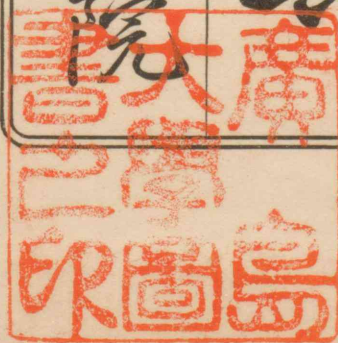 廣島
大學圖
書之印
院